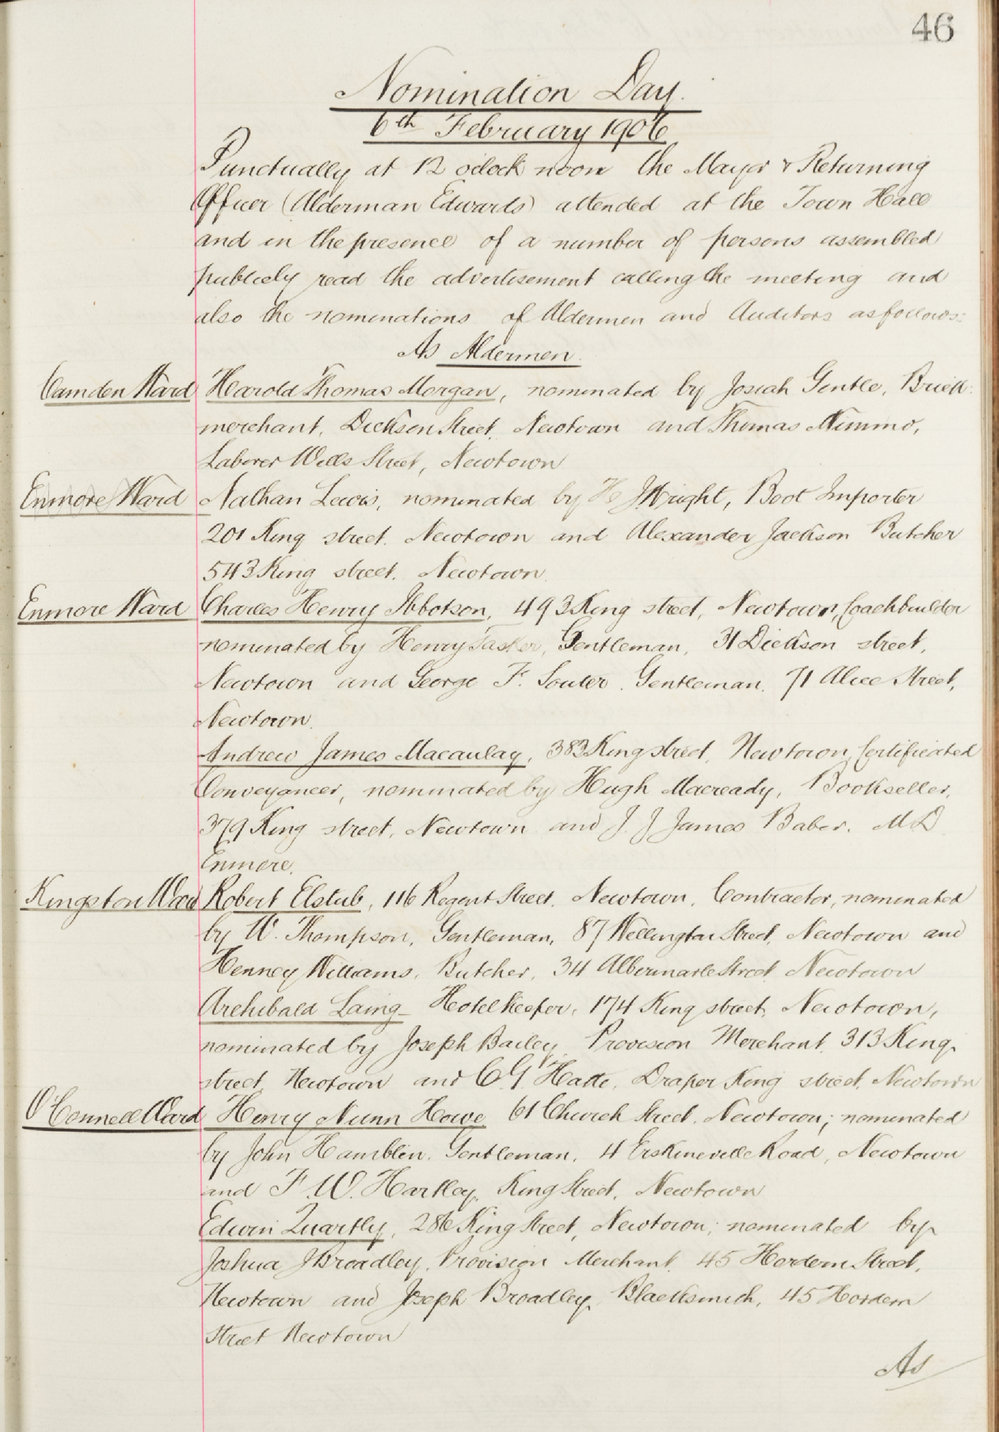 46
Nomination Day.
6th February 1906
Punctually at 12 o'clock noon the Mayor & Returning
Officer (Alderman Edwards) attended at the Town Hall
and in the presence of a number of persons assembled
publicly read the advertisement calling the meeting and
also the nominations of Aldermen and Auditors as follows:
As Aldermen.
Camden Ward Harold Thomas Morgan, nominated by Josiah Gentle, Brick
merchant, Dickson Street, Newtown and Thomas Nimmo,
Laborer Wells Street, Newtown
Enmore Ward Nathan Lewis, nominated by H J Wright, Boot Importer
201 King street. Newtown and Alexander Jackson Butcher
543 King street. Newtown.
Enmore Ward Charles Henry Ibbotson, 493 King street, Newtown, Coachbuilder
nominated by Henry Tasker, Gentleman, 31 Dickson street,
Newtown and George F. Souter. Gentleman. 71 Alice Street,
Newtown.
Andrew James Macaulay, 383 King street, Newtown, Certificated
Conveyancer, nominated by Hugh Macready, Bookseller,
379 King street, Newtown and J. J James Baber. M D
Enmore.
Kingston Ward Robert Elstub, 116 Regent Street. Newtown, Contractor, nominated
by W. Thompson, Gentleman, 87 Wellington Street, Newtown and
Henney Williams, Butcher, 34 Albermarle Street Newtown
Archibald Laing Hotel keeper, 174 King street, Newtown,
nominated by Joseph Bailey Provision Merchant, 313 King
street, Newtown and C G Hatte, Draper King street, Newtown
O'Connell Ward Henry Nunn Howe, 61 Church Street, Newtown; nominated
by John Hamblin, Gentleman, 4 Erskineville Road, Newtown
and F. W. Hartley, King Street, Newtown
Edwin Quartly, 286 King Street, Newtown; nominated by
Joshua J Broadley, Provision Merchant. 45 Hordern Street,
Newtown and Joseph Broadley, Blacksmith, 45 Hordern
Street Newtown
As